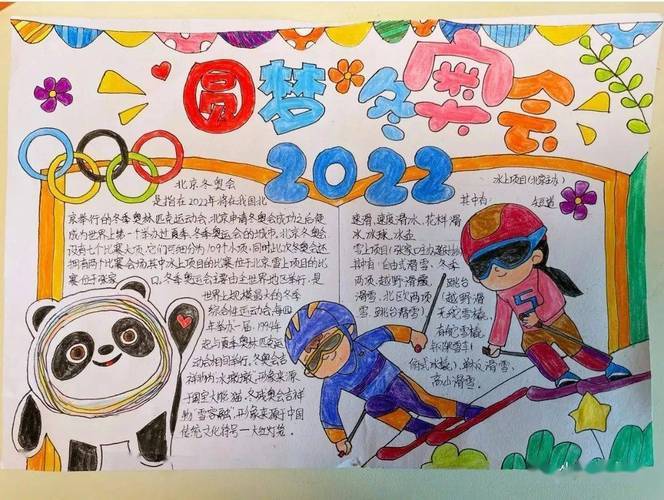 圆梦冬奥会
2022
北京冬奥会
是指在2022年将在我国北
京举行的冬季奥林匹克运动会,北京申请冬奥会成功之后使
成为世界上第一个举办过夏季、冬季奥运会的城市,北京冬奥会
设有七个比赛大项,它们可细分为109个小项,同时此次冬奥会还
拥有两个比赛会场,其中冰上项目的比赛位于北京,雪上项目的比
赛位于张家口。冬季奥运会主要由全世界地区举行,是
世界上规模最大的冬季
综合性运动会,每四
年举办一届,1994年
起与夏季奥林匹克运
动会相间举行。冬奥会吉
祥物为“冰墩墩”,形象来源
于国宝大熊猫。冬残奥会吉祥
物“雪容融”,形象来源于中国
传统文化符号一大红灯笼。
冰上项目(北京主办)
其中有:短道
速滑,速度滑冰、花样滑
冰、冰球、冰壶
雪上项目(张家口主办,
其中有:自由式滑雪、冬季
两项、越野滑
滑雪、北欧两项
雪、跳台滑雪)
跳台
(越野滑
无舵雪橇,
有舵雪橇,
钢架雪车
俯式冰橇)、单板滑雪
高山滑雪。
5